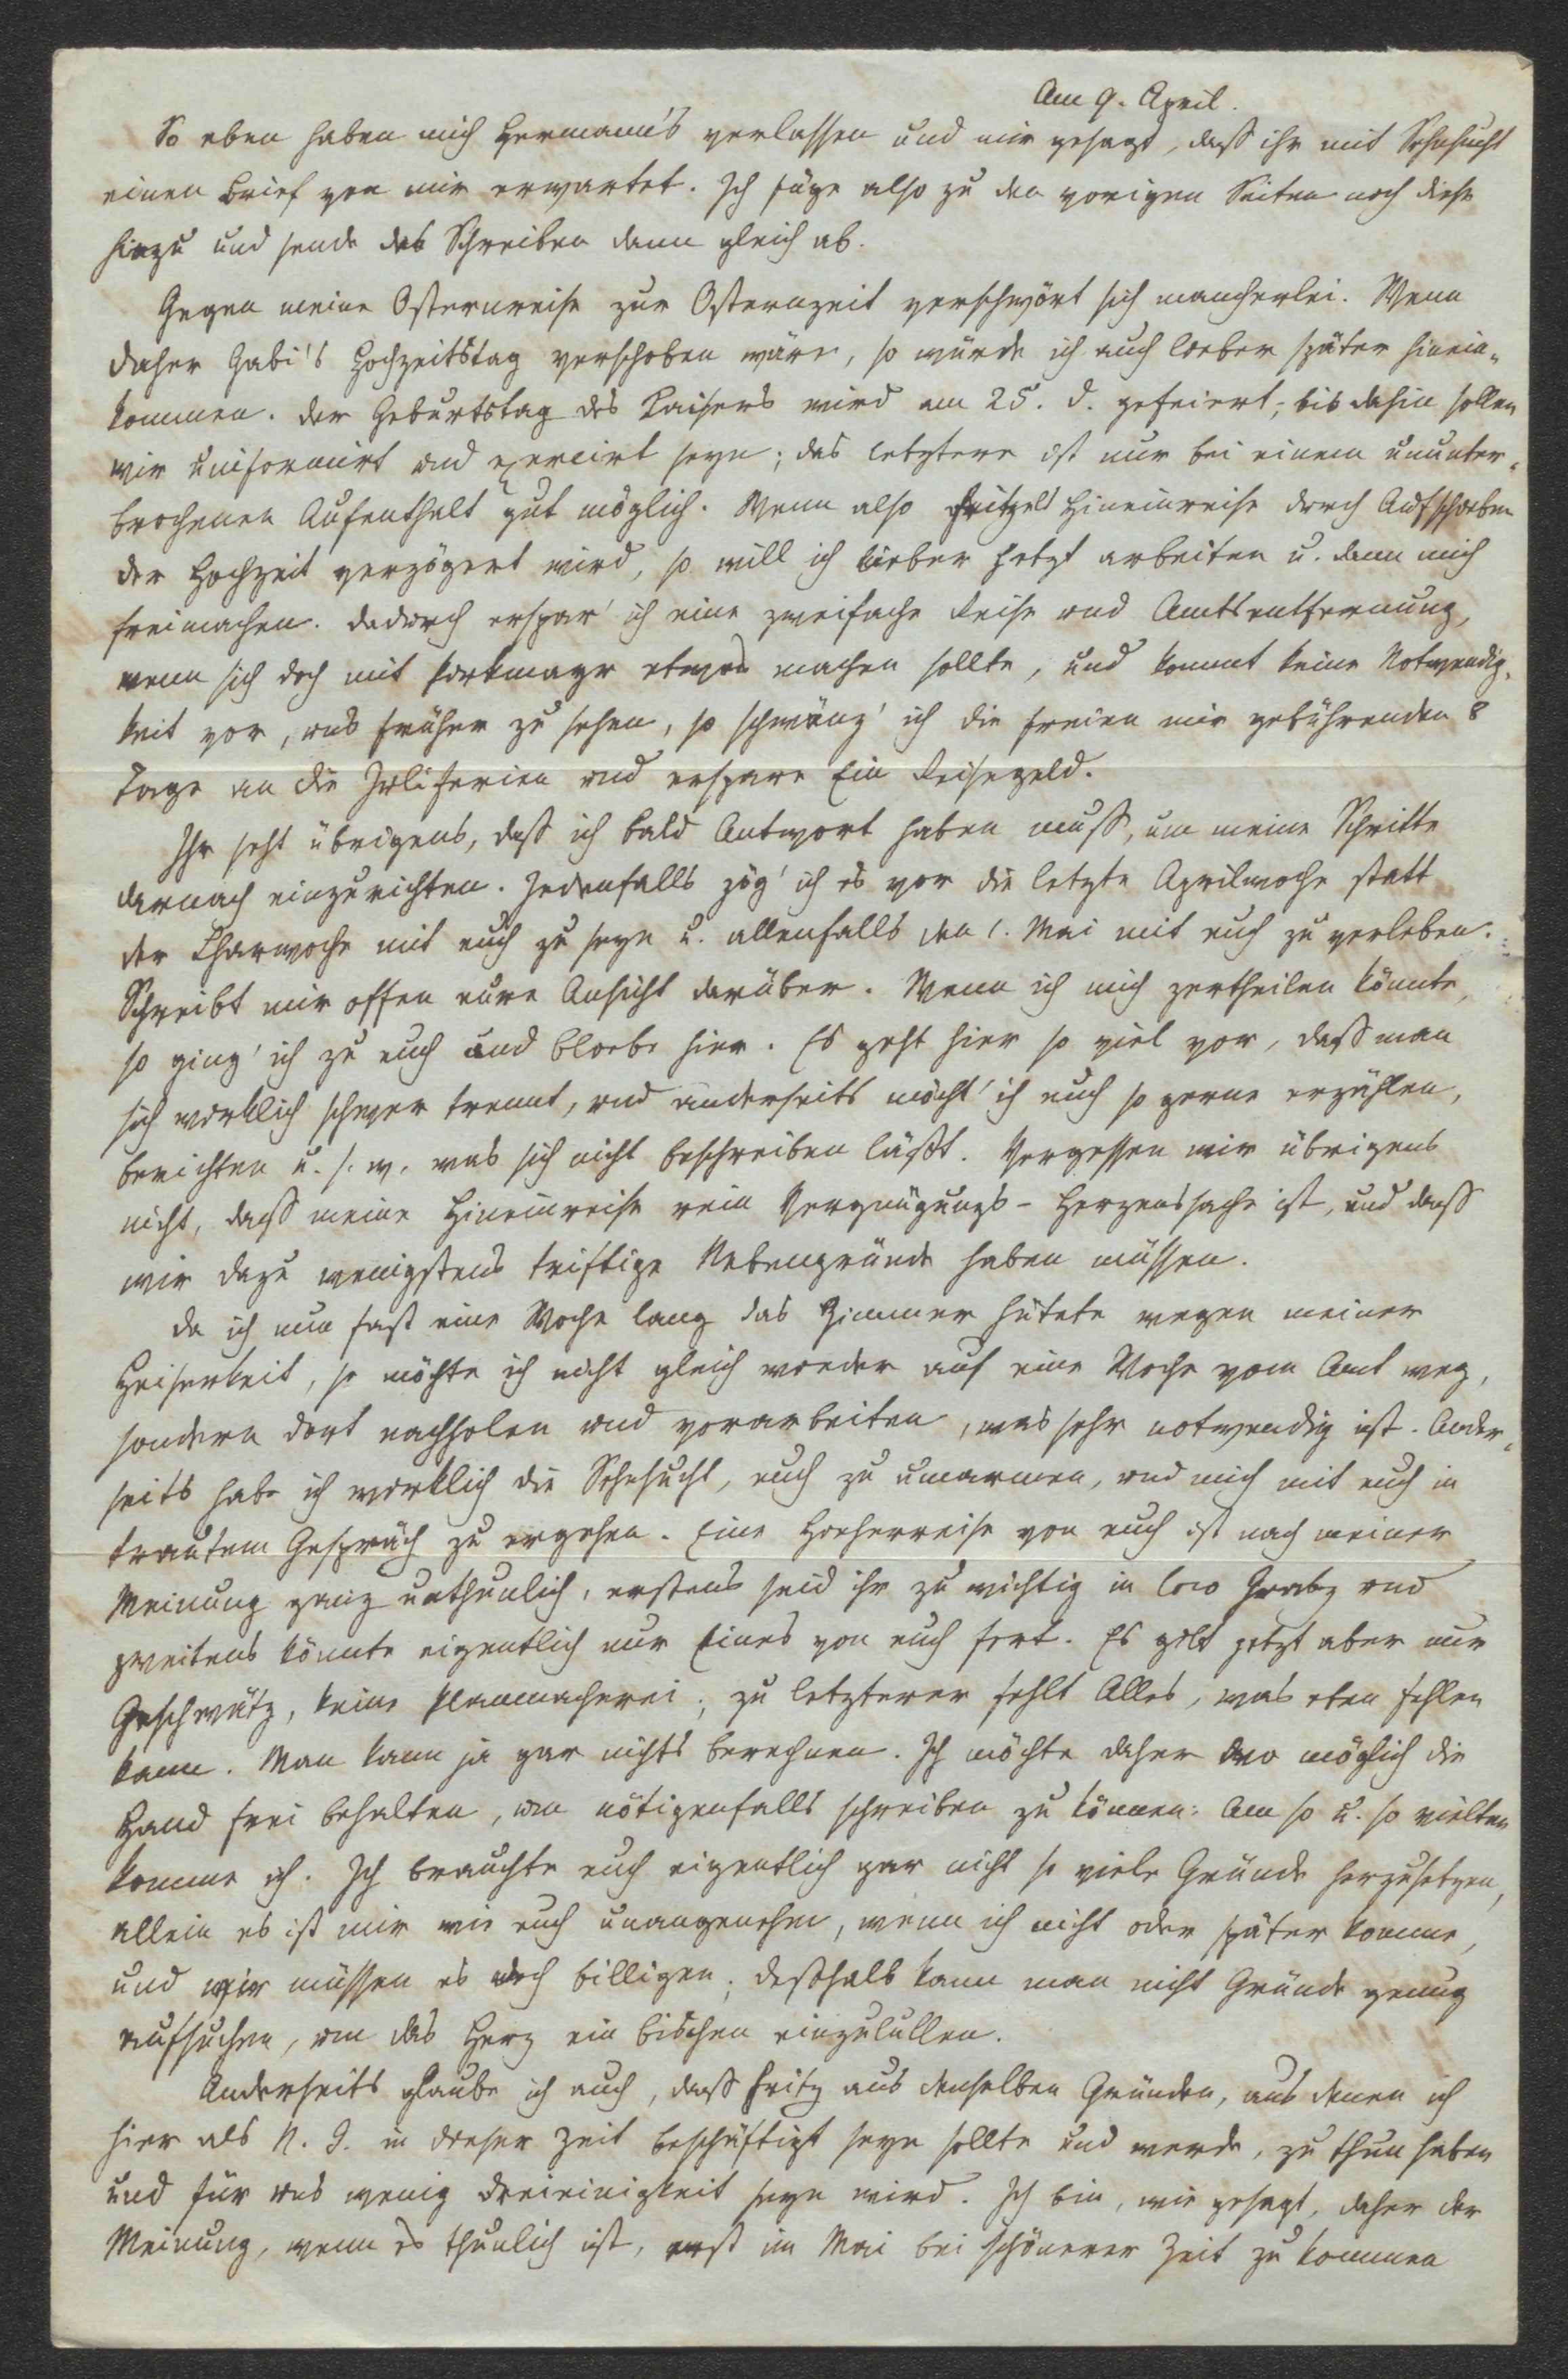 Am 9. April.
So eben haben mich Hermann's verlassen und mir gesagt, daß ihr mit Sehnsucht
einen Brief von mir erwartet. Ich füge also zu den vorigen Seiten noch diese
hinzu und sende das Schreiben dann gleich ab.
Gegen meine Osternreise zur Osternzeit verschwört sich mancherlei. Wenn
daher Gabi's Hochzeitstag verschoben wäre, so würde ich auch lieber später hinein-
kommen. Der Geburtstag des Kaisers wird am 25. d. gefeiert; bis dahin sollen
wir uniformirt und exercirt seyn; das letztere ist nur bei einem ununter-
brochenen Aufenthalt gut möglich. Wenn also Fritzels Hineinreise durch Aufschieben
der Hochzeit verzögert wird, so will ich lieber jetzt arbeiten u. dann mich
freimachen. Dadurch erspar' ich eine zweifache Reise und Amtsentfernung,
wenn sich doch mit etwas machen sollte, und kommt keine Notwendig-
keit vor, uns früher zu sehen, so schwänz' ich die freien mir gebührenden 8
Tage an die Juliferien und erspare Ein Reisegeld.
Ihr seht übrigens, daß ich bald Antwort haben muß, um meine Schritte
darnach einzurichten. Jedenfalls zög' ich es vor die letzte Aprilwoche statt
der Charwoche mit euch zu seyn u. allenfalls den 1. Mai mit euch zu verleben.
Schreibt mir offen eure Ansicht darüber. Wenn ich mich zertheilen könnte,
so ging' ich zu euch und bliebe hier. Es geht hier so viel vor, daß man
sich wirklich schwer trennt, und anderseits möcht' ich euch so gerne erzählen,
berichten u. s. w. was sich nicht beschreiben läßt. Vergessen wir übrigens
nicht, daß meine Hineinreise rein Vergnügungs- Herzenssache ist, und daß
wir dazu wenigstens triftige Nebengründe haben müssen.
Da ich nun fast eine Woche lang das Zimmer hütete wegen meiner
Heiserkeit, so möchte ich nicht gleich wieder auf eine Woche vom Amt weg,
sondern dort nachholen und vorarbeiten, was sehr notwendig ist. Ander-
seits habe ich wirklich die Sehnsucht, euch zu umarmen, und mich mit euch in
trautem Gespräch zu ergehen. Eine Hieherreise von euch ist nach meiner
Meinung ganz unthunlich, erstens seid ihr zu wichtig in loco und
zweitens könnte eigentlich nur Eines von euch fort. Es gilt jetzt aber nur
Geschwätz, keine Planmacherei; zu letzterer fehlt Alles, was eben fehlen
kann. Man kann ja gar nichts berechnen. Ich möchte daher wo möglich die
Hand frei behalten, um nötigenfalls schreiben zu können: Am so u. so vielten
komme ich. Ich brauchte euch eigentlich gar nicht so viele Gründe herzusetzen,
allein es ist mir wie euch unangenehm, wenn ich nicht oder später komme,
und wir müssen es doch billigen; deßhalb kann man nicht Gründe genug
aufsuchen, um das Herz ein bischen einzulullen.
Anderseits glaube ich auch, daß Fritz aus denselben Gründen, aus denen ich
hier als N. G. in dieser Zeit beschäftigt seyn sollte und werde, zu thun haben
und für uns wenig Dreieinigkeit seyn wird. Ich bin, wie gesagt, daher der
Meinung, wenn es thunlich ist, erst im Mai bei schönerer Zeit zu kommen